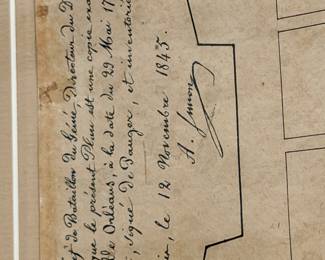 de Bataillon du Génie, Directeur du D
que le présent Plan est une copie exa
de Orléans, à la date du 29 Mai 17
, signé de Pauger, et inventorié
, le 12 Novembre 1843.
A.